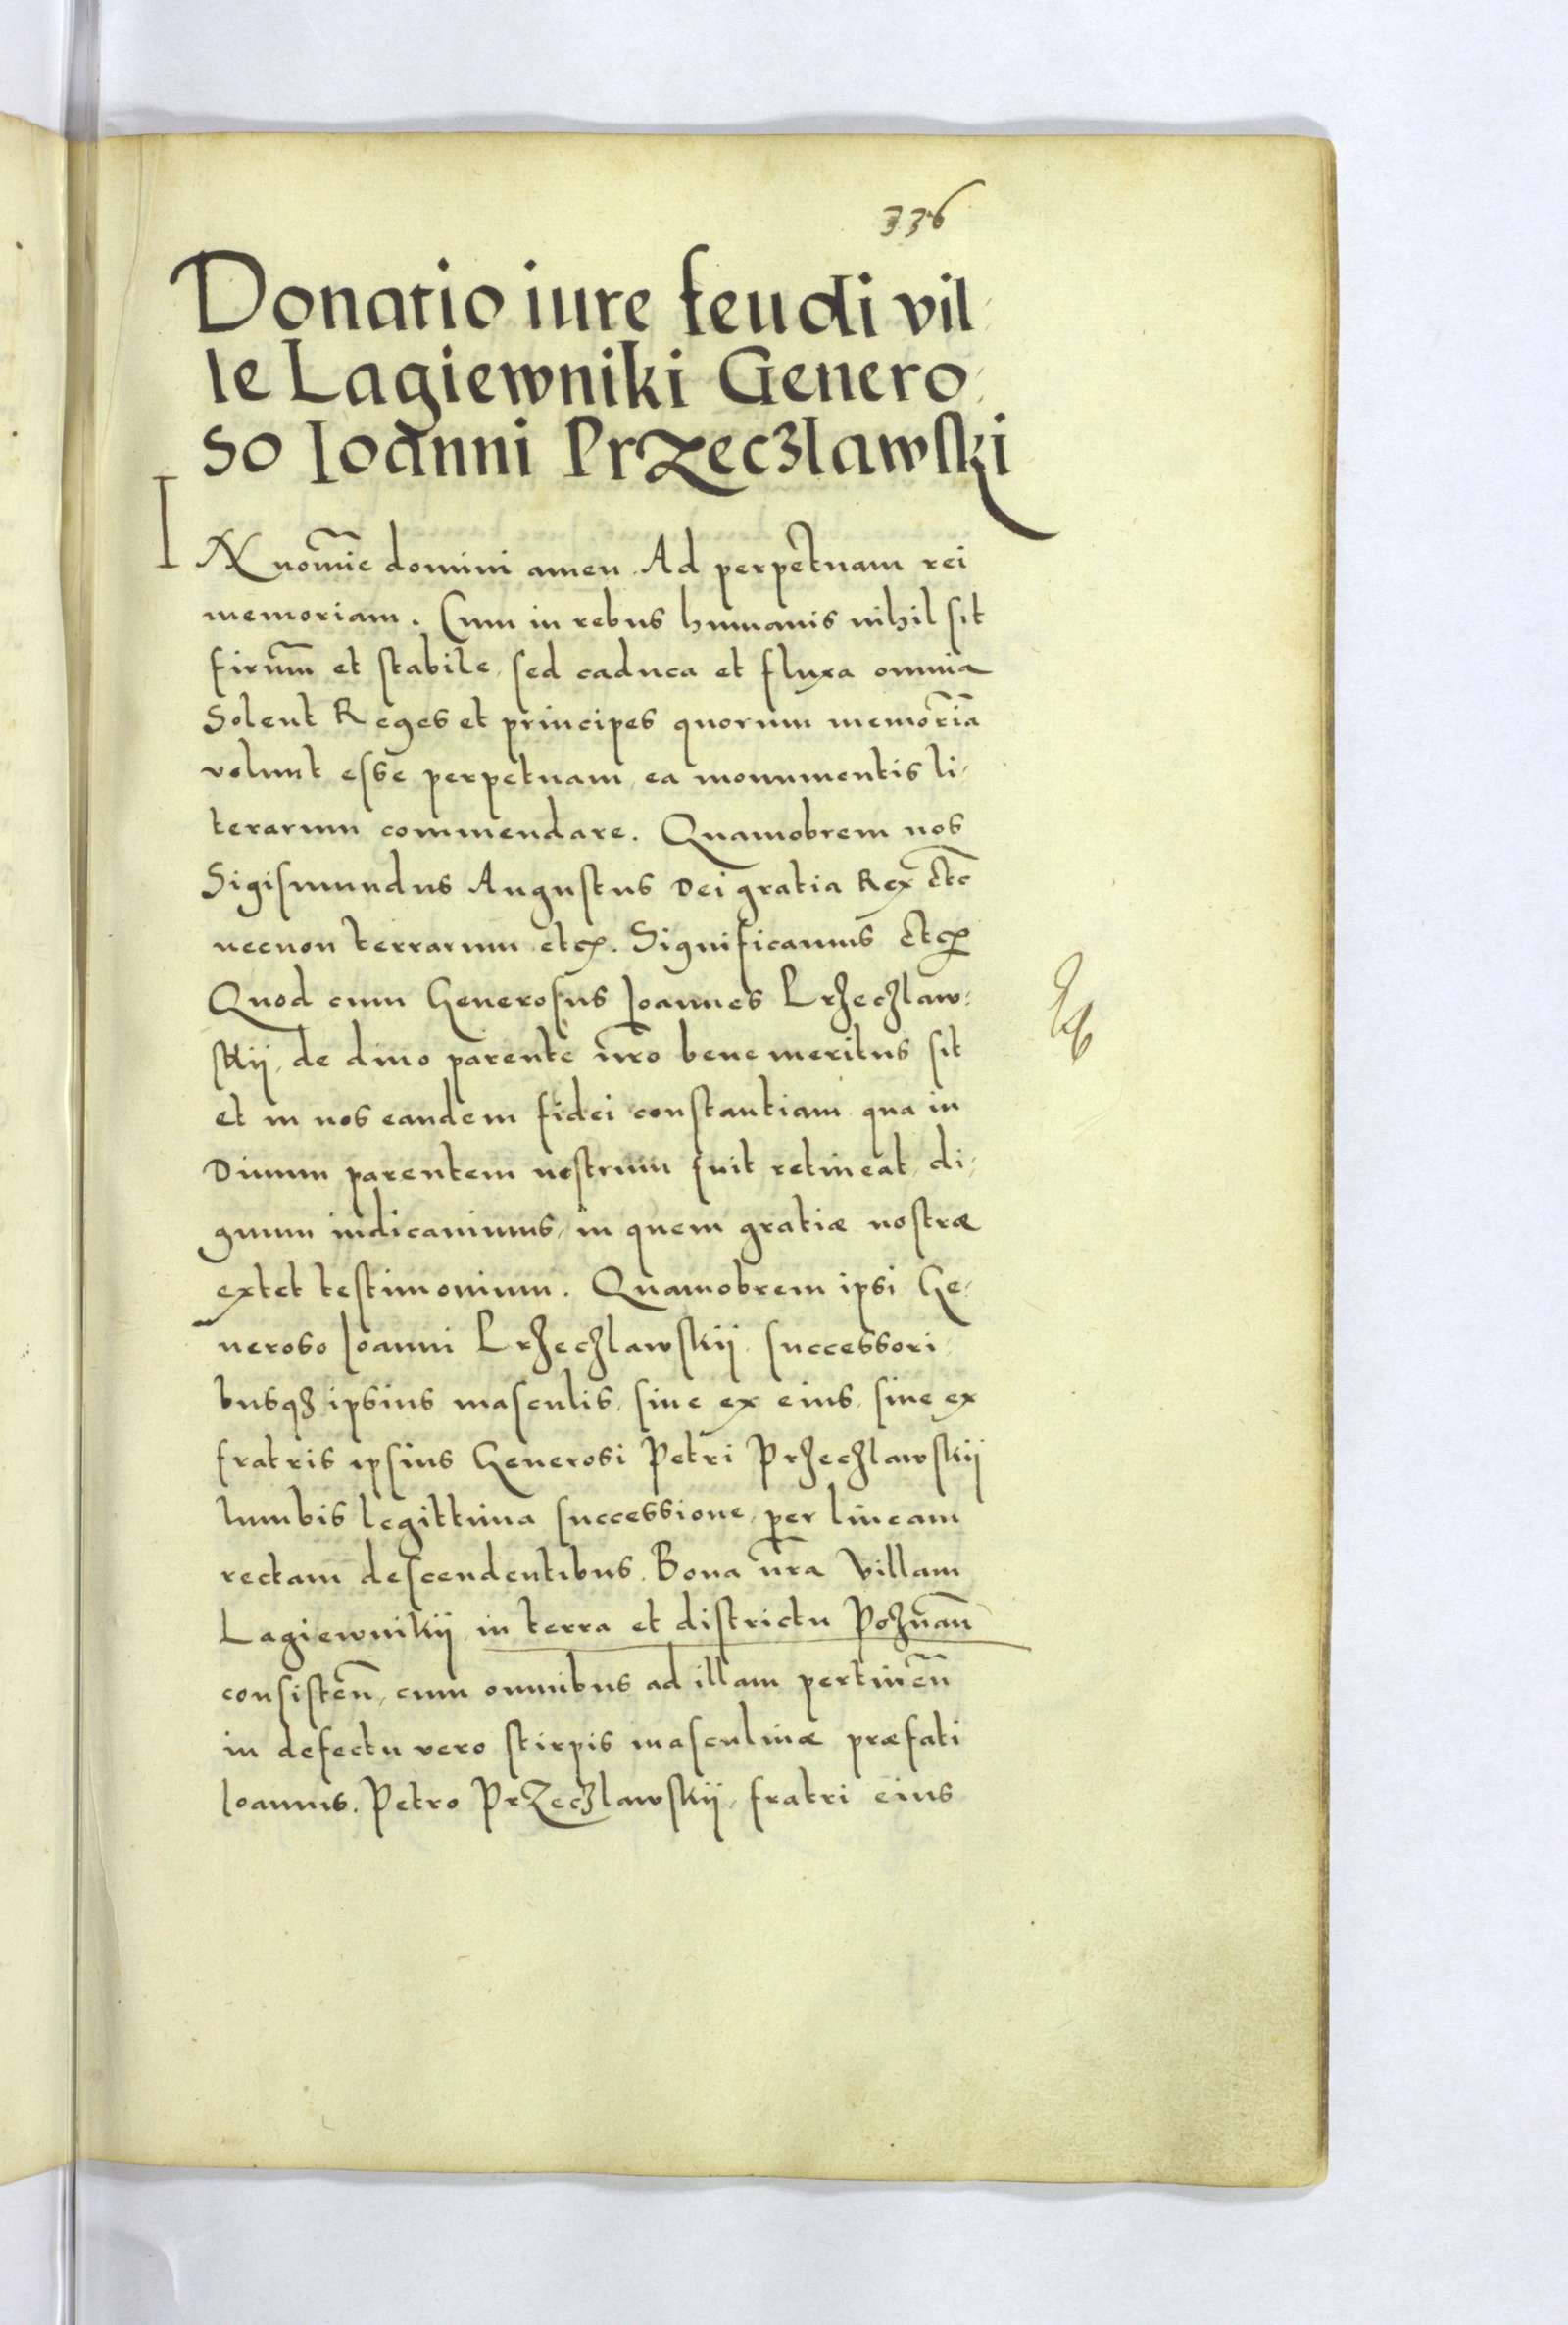 336
Donatio iure feudi vil
le Lagiewniki Genero
so Ioanni Przeczlawski
IN nomīe domini amen. Ad perpetuam rei
memoriam. Cum in rebus humanis nihil sit
firmū et stabile, sed caduca et fluxa omnia
Solent Reges et principes quorum memoriā
volunt esse perpetuam, ea monumentis li-
terarum commendare. Quamobrem nos
Sigismundus Augustus Dei gratia Rex etc
necnon terrarum etc. Significamus etc
Quod cum Generosus Ioannes Przeczlaw-
skij, de diuo parente nr̄o bene meritus sit
et in nos eandem fidei constantiam qua in
Diuum parentem nostrum fuit retineat, di-
gnum iudicauimus, in quem gratiæ nostræ
extet testimonium. Quamobrem ipsi Ge-
neroso Ioanni Przeczlawskij, successori
busqꝫ ipsius masculis, siue ex eius, siue ex
fratris ipsius Generosi Petri Przeczlawskij
lumbis legittima successione, per lineam
rectam descendentibus. Bona nr̄a Villam
Lagiewnikij in terra et districtu Poznan̄
consisten̄, cum omnibus ad illam pertinen̄
in defectu vero stirpis masculinæ præfati
Ioannis. Petro Przeczlawskij, fratri eius